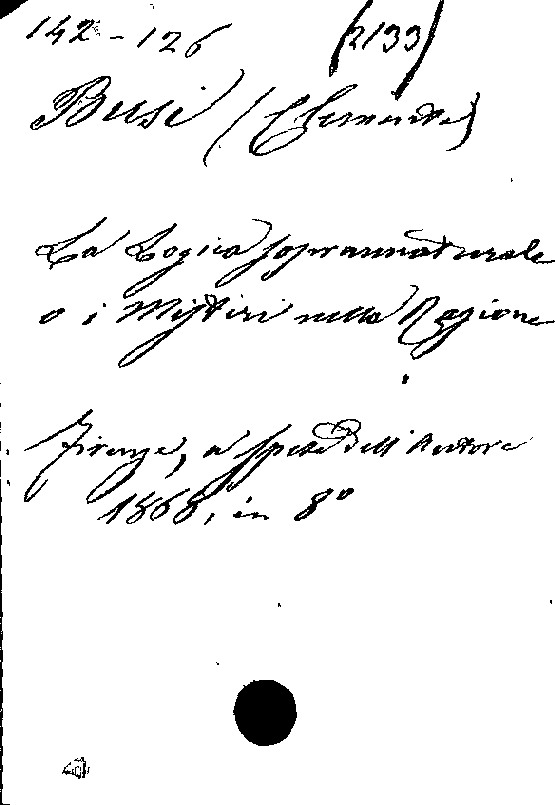 142-126 (2133)
Busi (Clemente)
La Logica soprannaturale
o i Misteri nella Ragione
Firenze, a spese dell'Autore
1868, in 8º